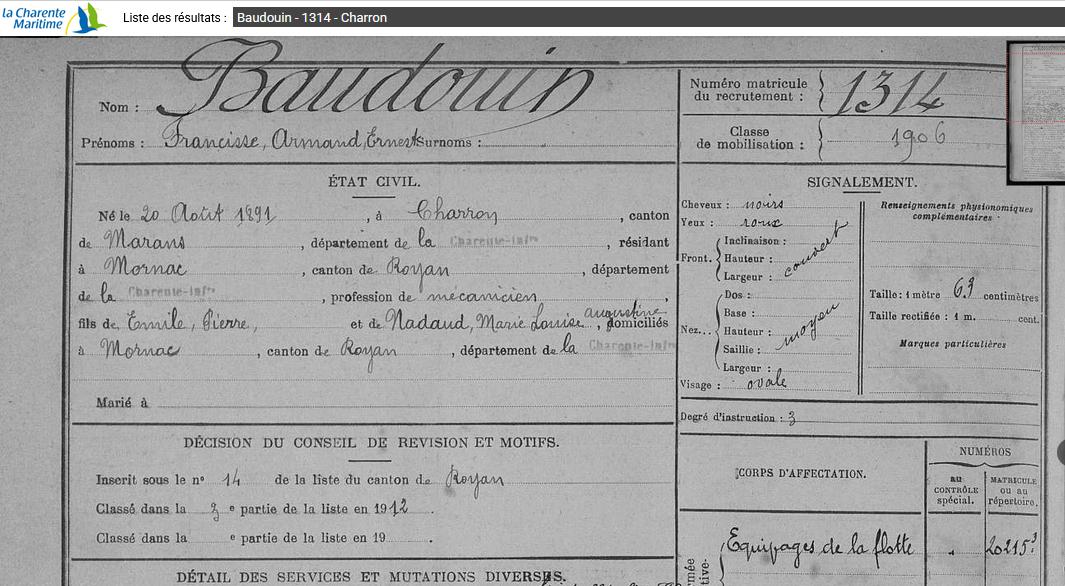 la Charente Maritime
Liste des résultats : Baudouin - 1314 - Charron
Nom : Baudouin
Prénoms : Francisse, Armand, Ernest Surnoms :
Numéro matricule du recrutement : 1314
Classe de mobilisation : 1906
ÉTAT CIVIL.
Né le 20 Août 1891, à Charron, canton
de Marans, département de la Charente-Infre, résidant
à Mornac, canton de Royan, département
de la Charente-Infre, profession de mécanicien,
fils de Emile, Pierre, et de Nadaud, Marie Louise Augustine, domiciliés
à Mornac, canton de Royan, département de la Charente-Infre
Marié à
DÉCISION DU CONSEIL DE REVISION ET MOTIFS.
Inscrit sous le n° 14 de la liste du canton de Royan
Classé dans la 3 e partie de la liste en 1912.
Classé dans la e partie de la liste en 19 .
DÉTAIL DES SERVICES ET MUTATIONS DIVERSES.
SIGNALEMENT.
Cheveux : noirs
Yeux : roux
Front. Inclinaison :
Hauteur : couvert
Largeur :
Nez... Dos :
Base :
Hauteur : moyen
Saillie :
Largeur :
Visage : ovale
Renseignements physionomiques complémentaires
Taille : 1 mètre 63 centimètres
Taille rectifiée : 1 m. cent.
Marques particulières
Degré d'instruction : 3
CORPS D'AFFECTATION.
NUMÉROS
au CONTRÔLE spécial.
MATRICULE ou au répertoire.
Equipages de la flotte " 20215.3